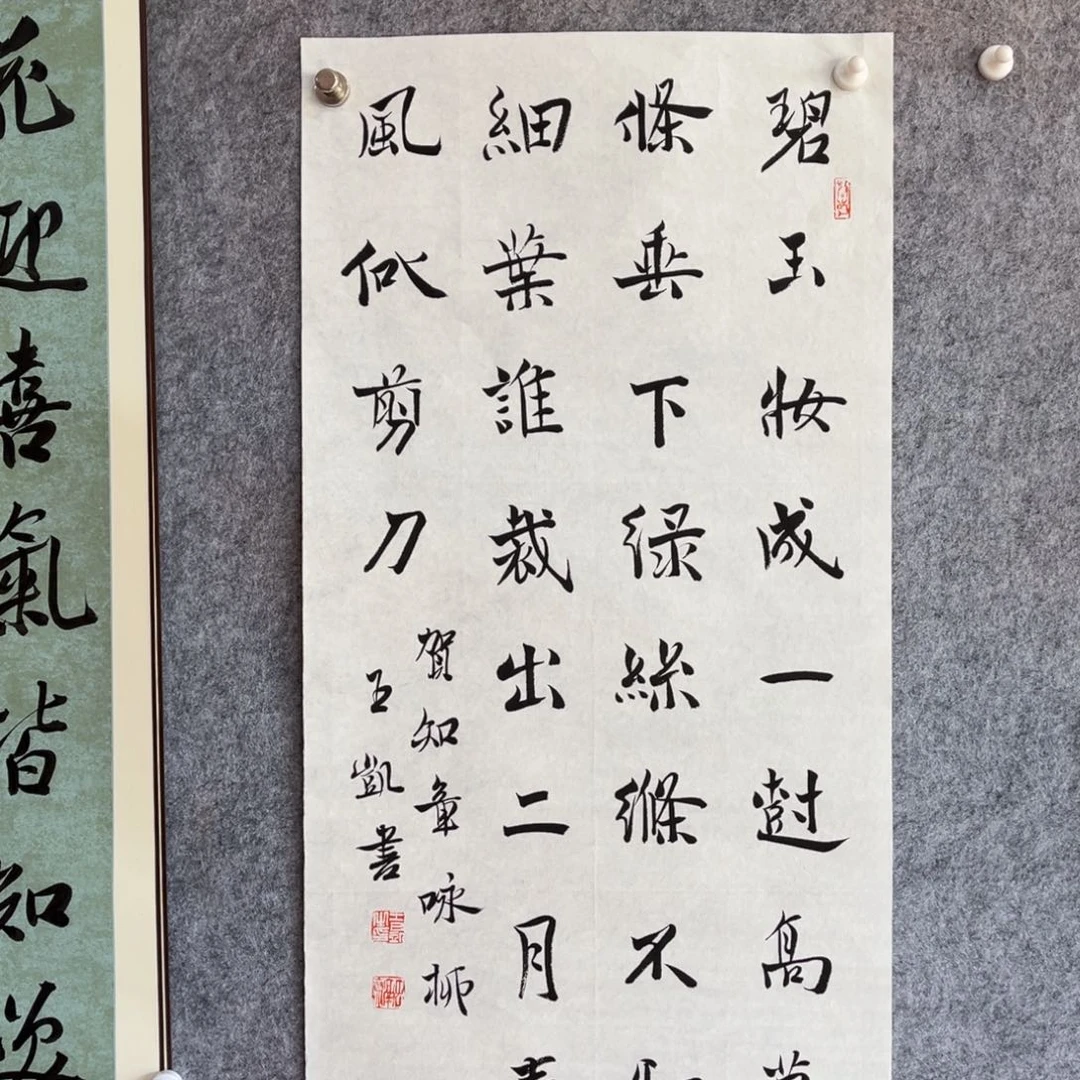 碧玉妝成一樹高萬
條垂下緑絲縧不知
細葉誰裁出二月春
風似剪刀
賀知章咏柳
王凱書
花迎喜氣皆知笑